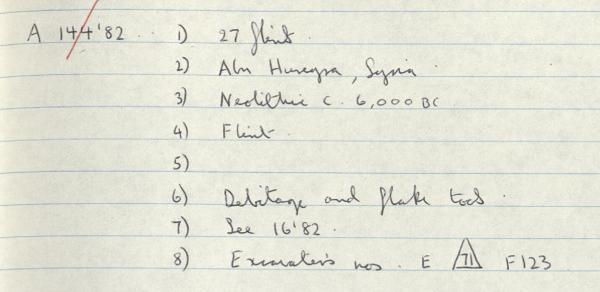 A 144'82 1) 27 flint.
2) Abu Hureyra, Syria.
3) Neolithic c. 6,000 BC
4) Flint.
5)
6) Debitage and flake tools.
7) See 16'82.
8) Excavator's nos. E 71 F123